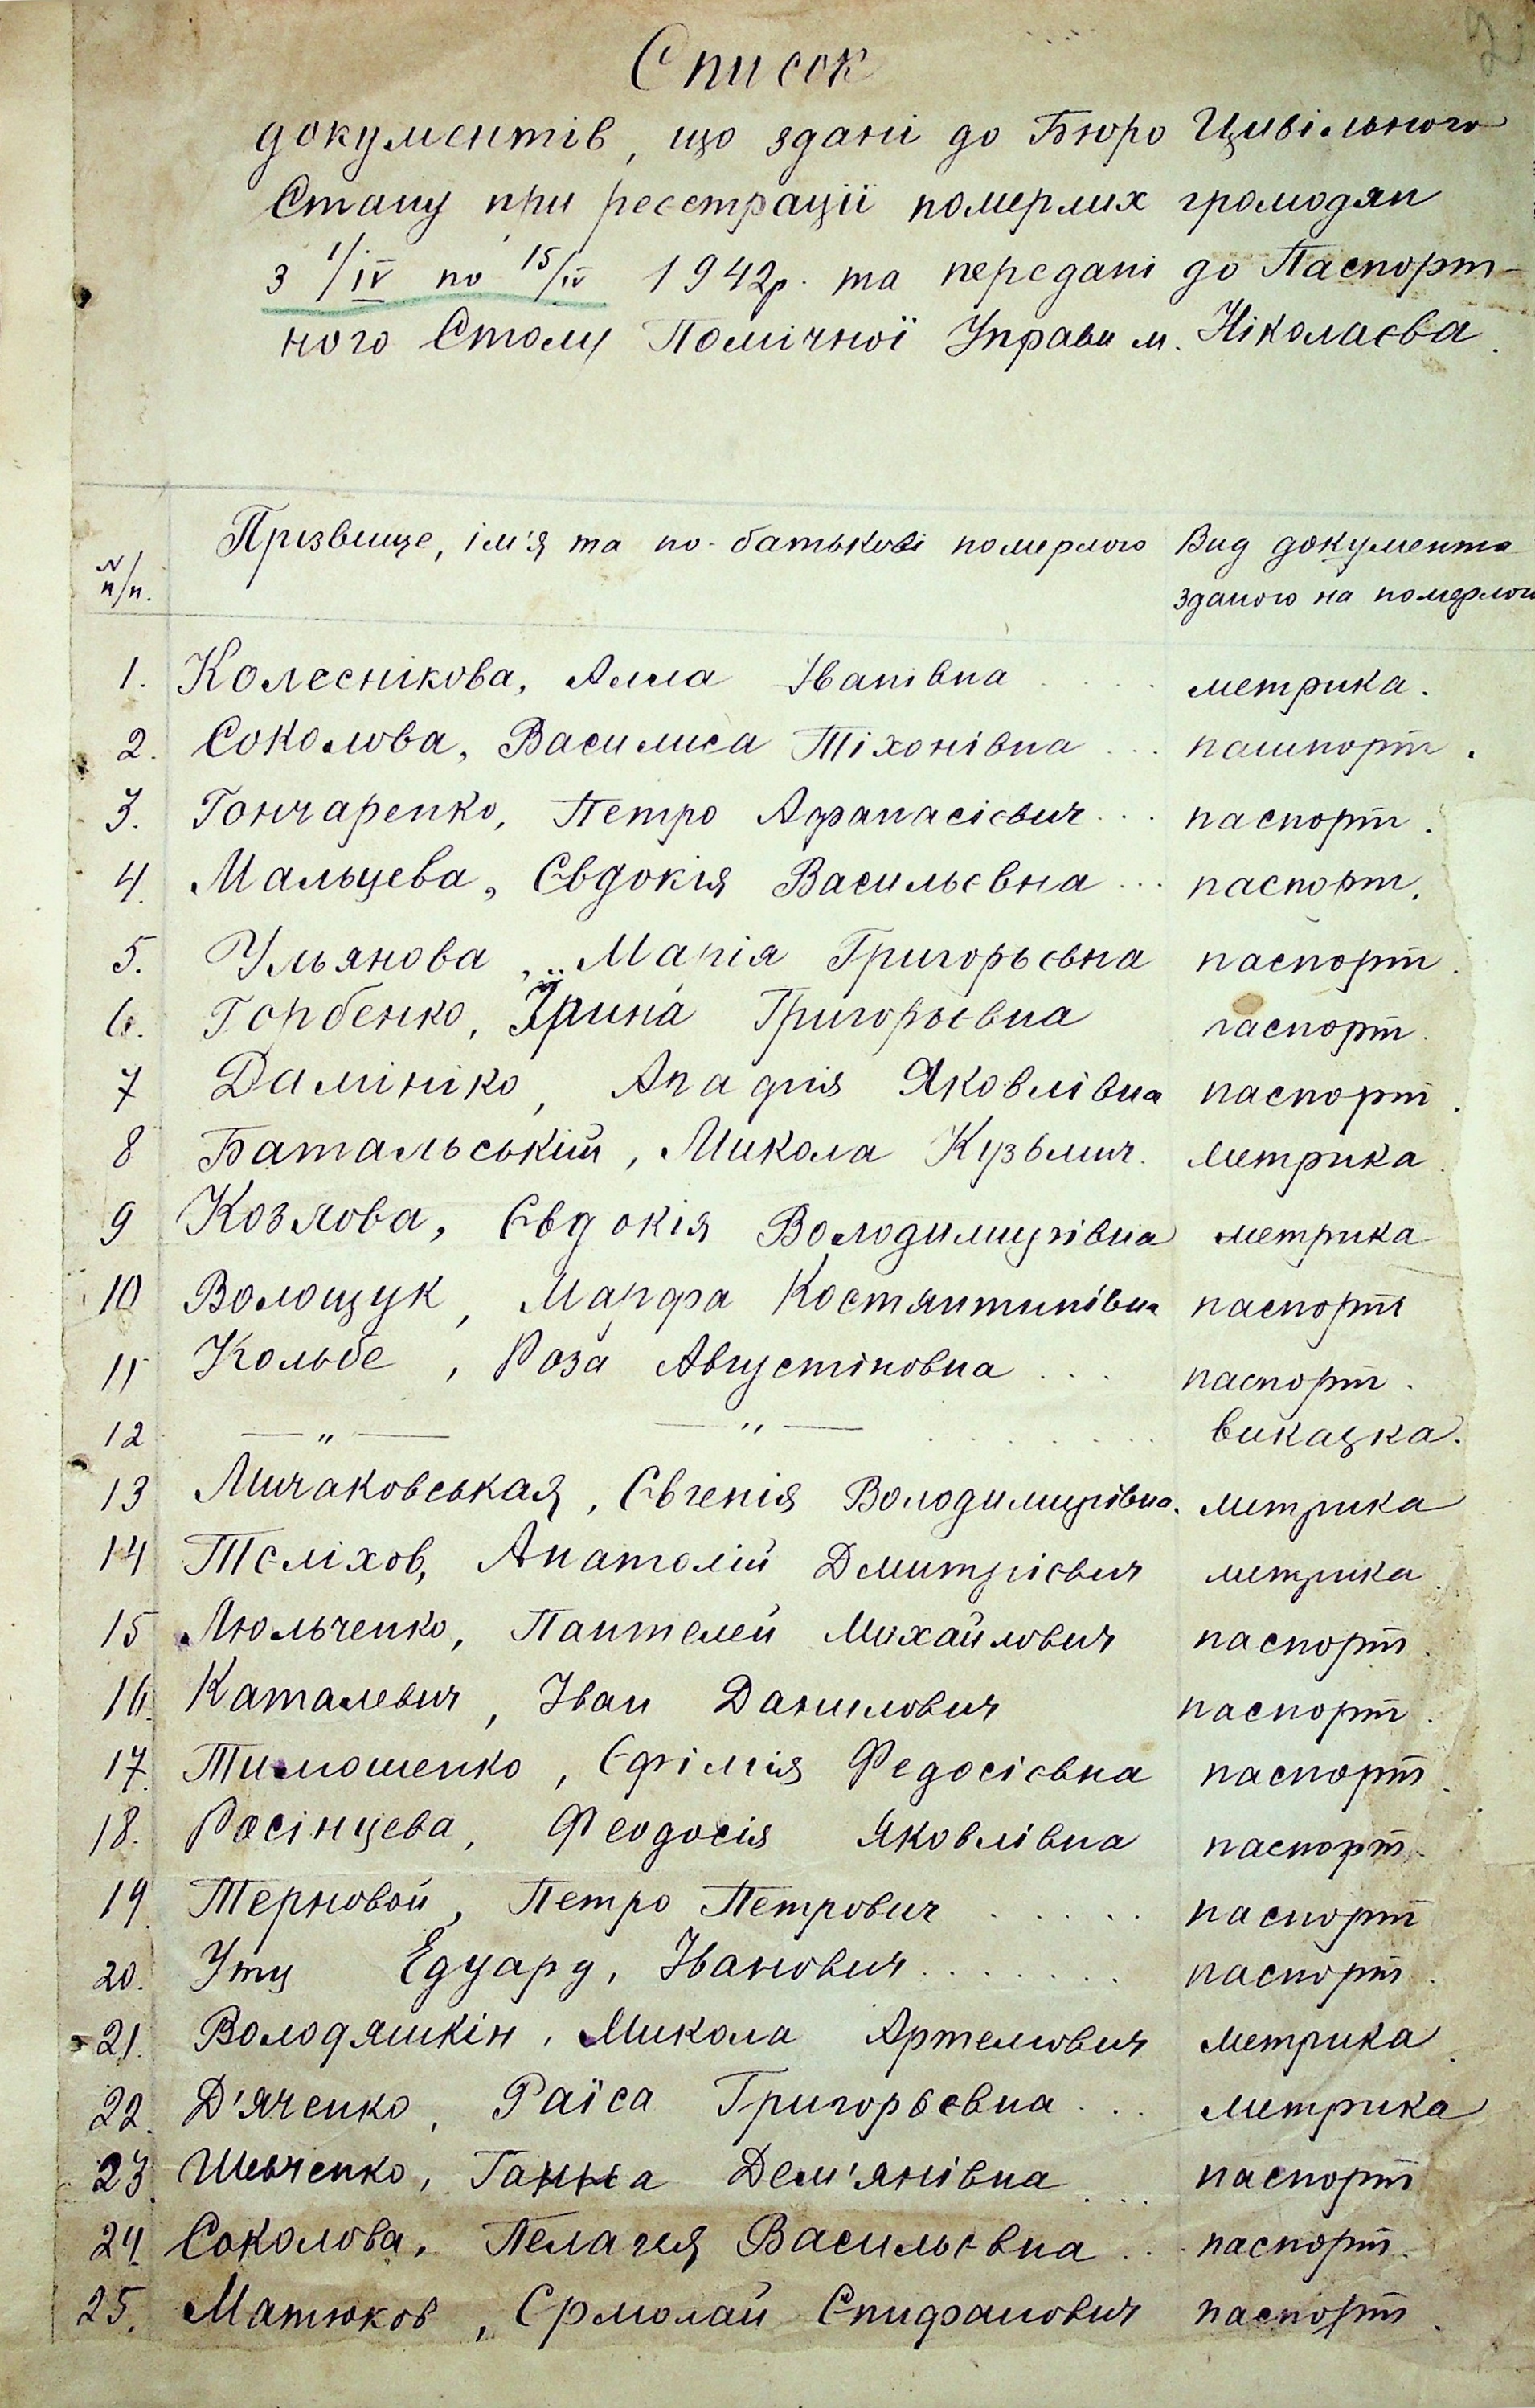 2
Список
документів, що здані до Бюро Цивільного
Стану при реєстрації померлих громодян
з 1/IV по 15/IV 1942р. та передані до Паспорт-
ного Столу Помічної Управи м. Ніколаєва.
Прізвище, ім'я та по-батькові померлого Вид документа
N п/п. зданого на померлого
1. Колеснікова, Алла Іванівна . . . метрика.
2. Соколова, Василиса Тіхонівна . . . пашпорт.
3. Гончаренко, Петро Афанасієвич . . . паспорт.
4. Мальцева, Євдокія Васильєвна . . . паспорт.
5. Ульянова, Марія Григорьєвна паспорт.
6. Горбенко, Ірина Григорьєвна паспорт.
7 Дамініко, Яковлівна паспорт.
8 Батальській, Микола Кузьмич. метрика.
9 Козлова, Євдокія Володимирівна метрика
10 Волощук, Марфа Костянтинівна паспорт
11 Кольбе, Роза Августіновна . . . паспорт.
12 —〃— —〃— . . . . . викацка.
13 Личаковськая, Євгенія Володимирівна. метрика
14 Тєліхов, Анатолій Дмитрієвич метрика.
15 Люльченко, Пантелей Михайлович паспорт.
16. Каталевич, Іван Данилович паспорт.
17. Тимошенко, Єфімія Федосієвна паспорт.
18. Росінцева, Феодосія Яковлівна паспорт.
19. Терновой, Петро Петрович . . . . . паспорт
20. Утц Едуард, Іванович . . . . . . . паспорт.
21. Володяшкін, Микола Артемович метрика.
22. Д'яченко, Раїса Григорьєвна . . . метрика
23. Шевченко, Ганна Дем'янівна . . . паспорт
24. Соколова, Пелагея Васильєвна . . . паспорт.
25. Матюков, Єрмолай Єпифанович паспорт.